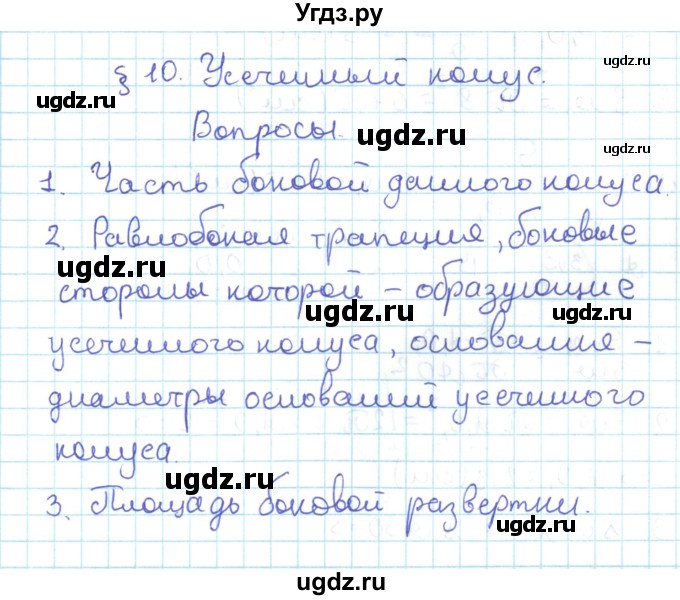 Угдз.ру
§ 10. Усеченный конус.
ugdz.ru
Вопросы.
ugdz.ru
1. Часть боковой данного конуса.
2. Равнобокая трапеция, боковые
ugdz.ru
стороны которой – образующие
ugdz.ru
ugdz.ru
усеченного конуса, основания –
диаметры оснований усеченного
конуса.
ugdz.ru
3. Площадь боковой развертки.
ugdz.ru
ugdz.ru